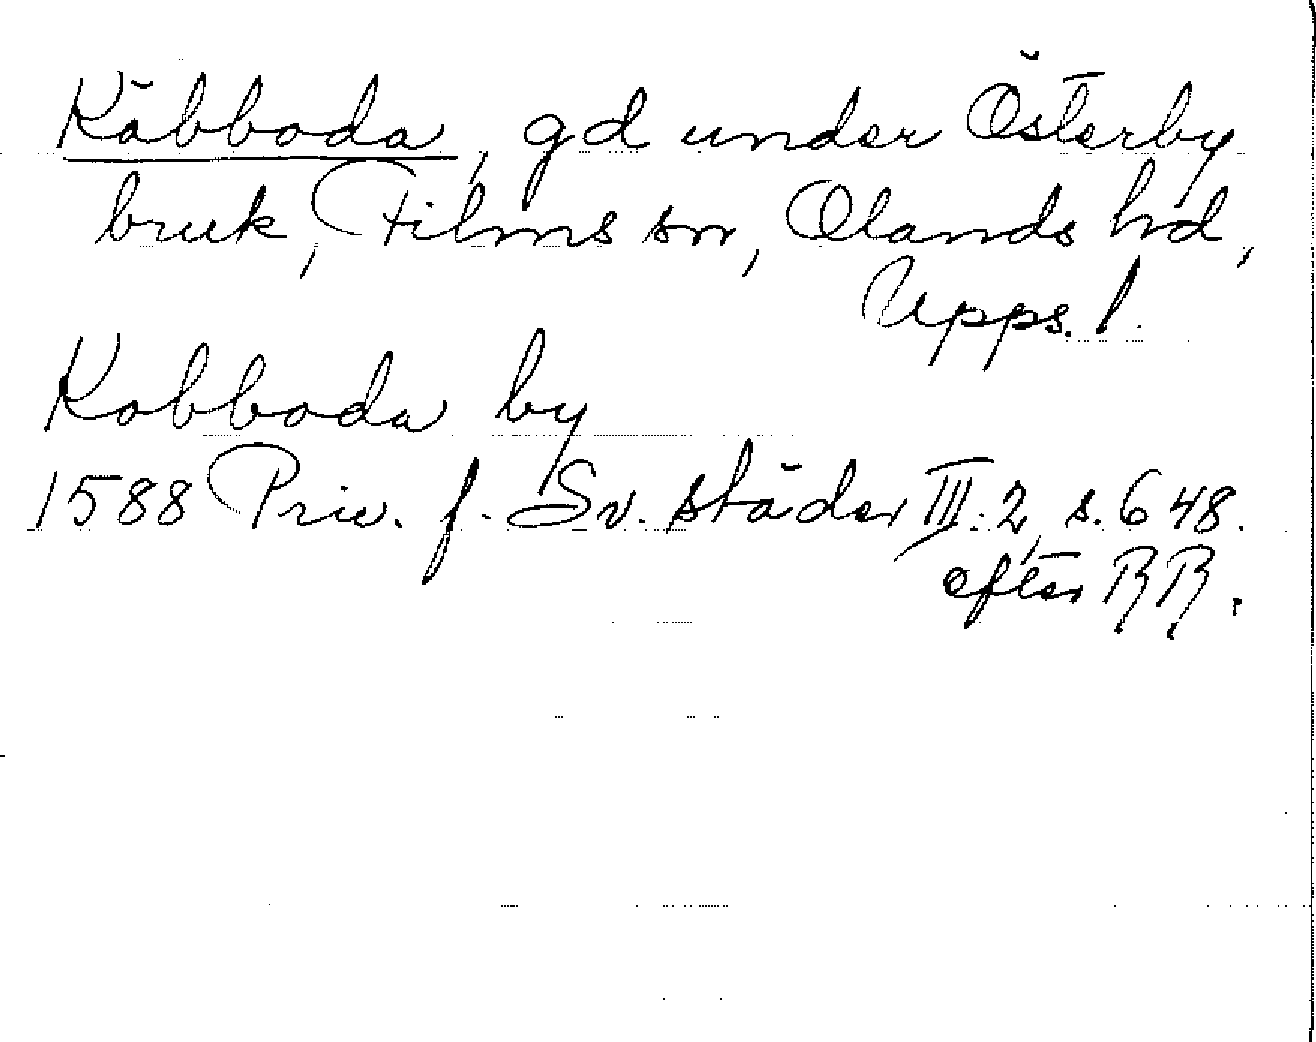 Kåbboda, gd under Österby
bruk, Films sn, Olands hd,
Upps. l.
Kobboda by
1588 Priv. f. Sv. städer III: 2, s. 648.
efter RR.